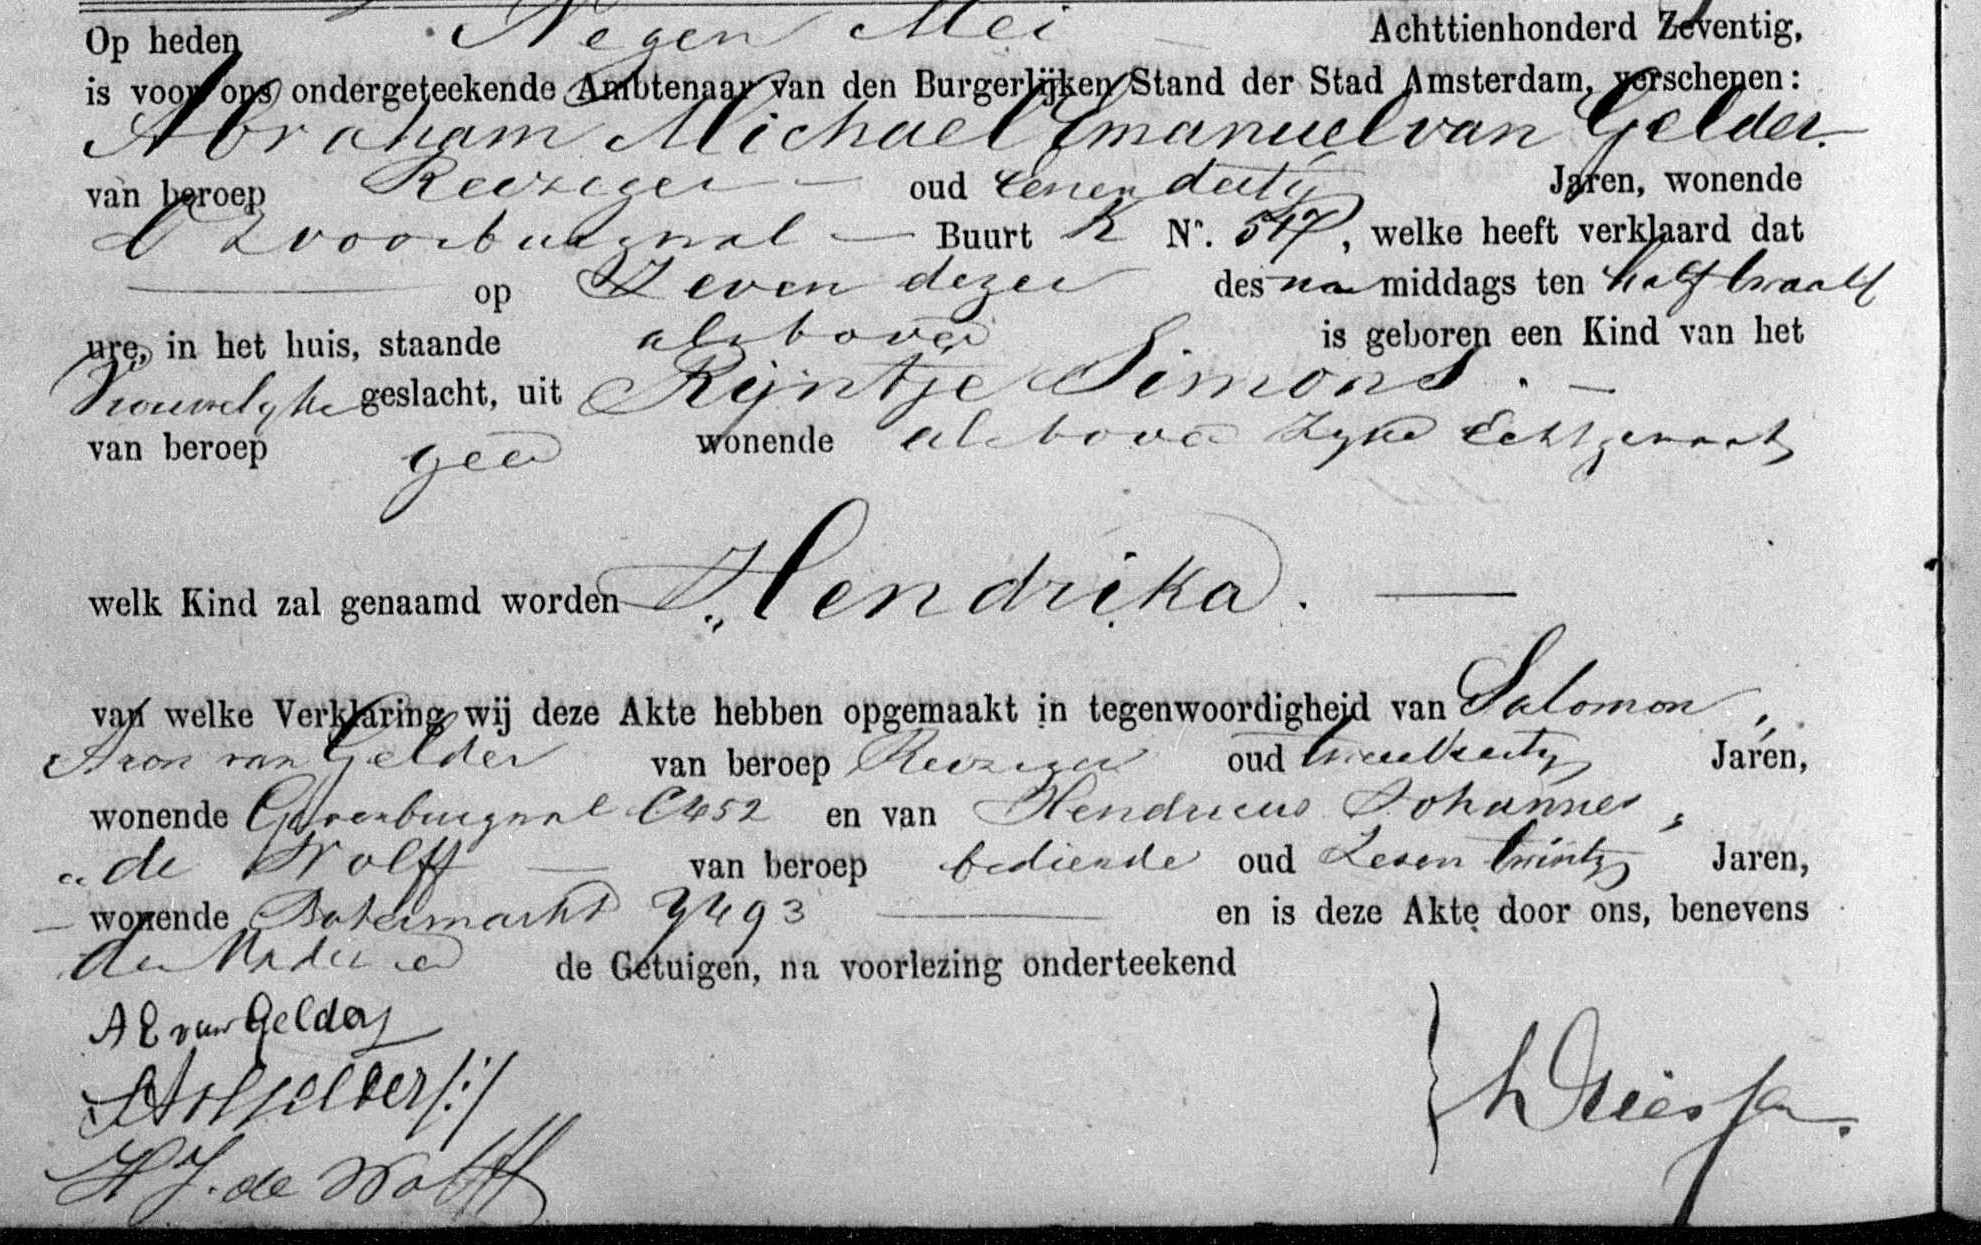 Op heden Negen Mei Achttienhonderd Zeventig,
is voor ons ondergeteekende Ambtenaar van den Burgerlijken Stand der Stad Amsterdam, verschenen:
Abraham Michael Emanuel van Gelder.
van beroep Reiziger oud eenendertig Jaren, wonende
O Z voorburgwal Buurt K No. 547, welke heeft verklaard dat
op Zeven dezer des na middags ten half twaalf
ure, in het huis, staande als boven is geboren een Kind van het
Vrouwelijke geslacht, uit Rijntje Simons.
van beroep geen wonende als boven zijne Echtgenoote
welk Kind zal genaamd worden „Hendrika.
van welke Verklaring wij deze Akte hebben opgemaakt in tegenwoordigheid van Salomon „
Aron van Gelder van beroep Reiziger oud Jaren,
wonende burgwal C452 en van Hendricus Johannes „
„de Wolff van beroep bediende oud Zesentwintig Jaren,
wonende Botermarkt 493 en is deze Akte door ons, benevens
den Vader en de Getuigen, na voorlezing onderteekend
A E van Gelder
H J. de Wolff